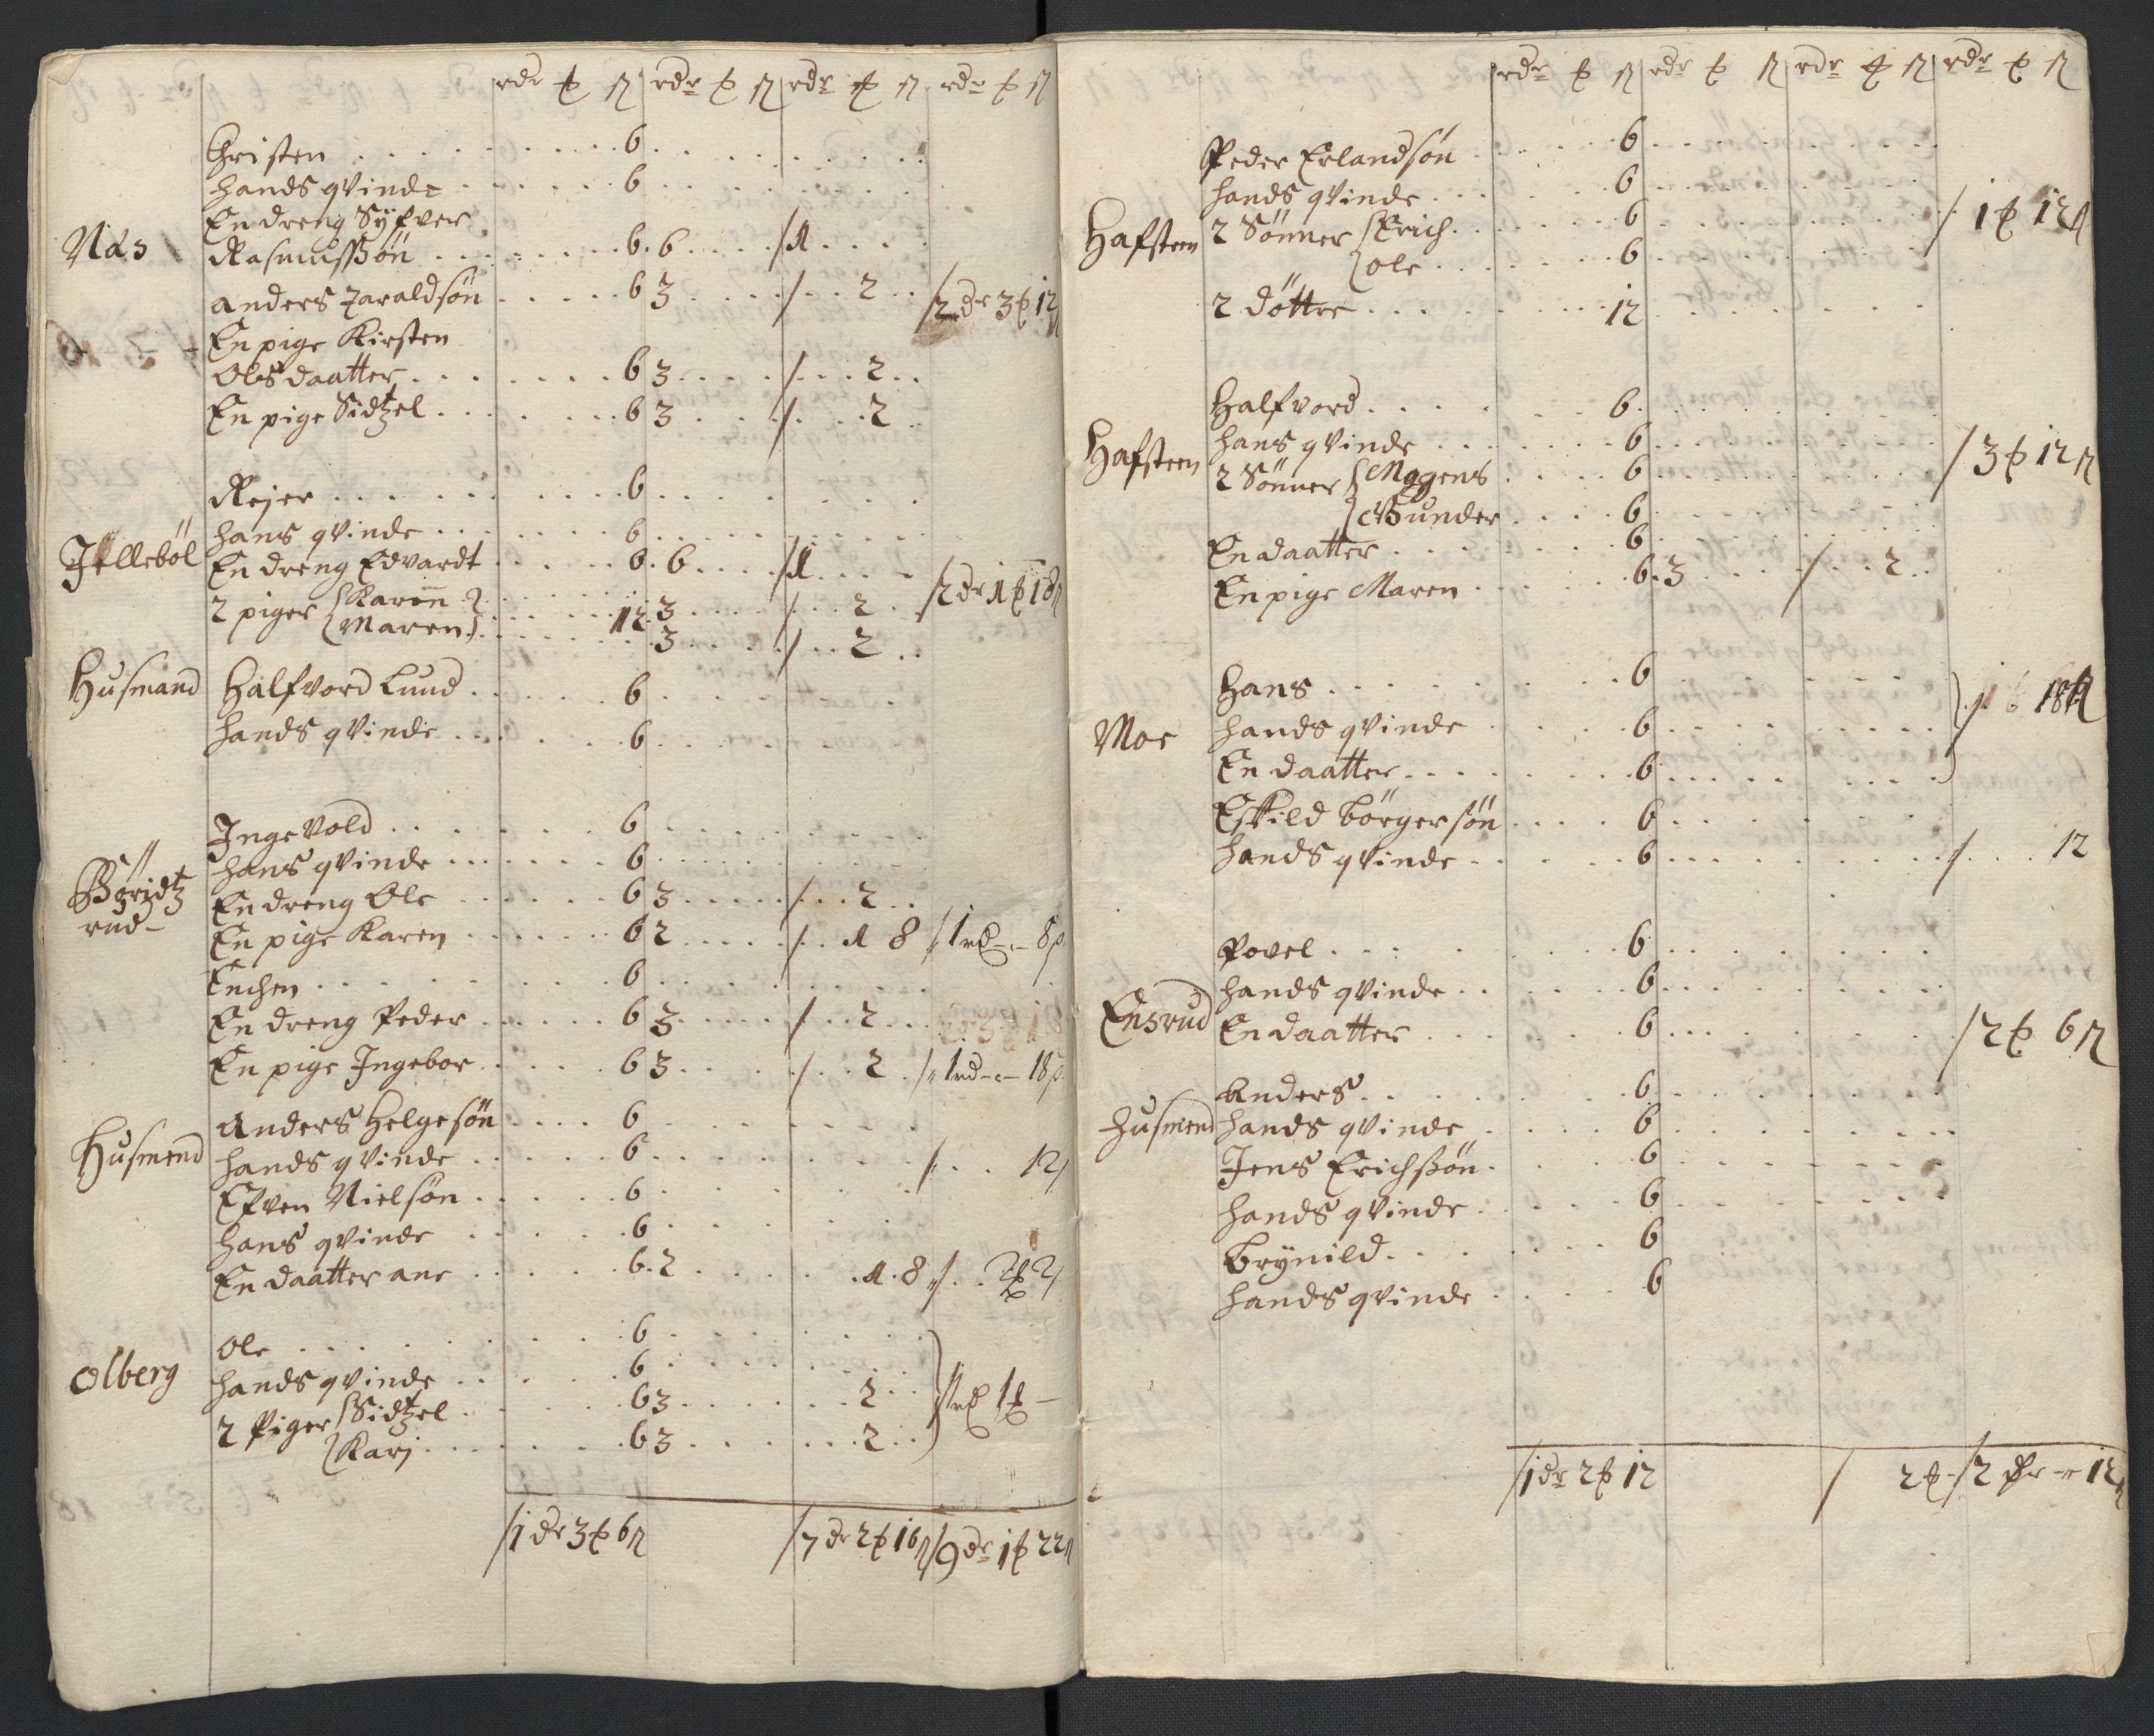 rdr ₰ ß rdr ₰ ß rdr ₰ ß rdr ₰ ß
Christen . . . 6 . . .
hands qvinde . . . 6 . . .
En dreng Syfver
Nås Rasmussøn . . . 6 . 6 . . . /1 . . .
Anders Haraldsøn . . . 6 3 . . . / . . 2 . . /2 dr 3 ₰ 12 ß
En pige Kirsten
Olsdaatter . . . 6 3 . . . / . . 2 . .
En pige Sidtzel . . . 6 3 . . . / . . 2 .
Rejer . . . 6 . . .
hans qvinde . . . 6 . . .
Jellebøl En dreng Edvardt . . . 6 . 6 . . . /1 . . .
2 piger { Karenn . . . 12 . 3 . . . / . . 2 . /2 dr 1 ₰ 18 ß
{ Maren . . . 3 . . . / . . 2 . .
Husmand Halfvord Lund . . . 6 . . .
hands qvinde . . . 6 . . .
Ingevold . . . 6 . . .
hans qvinde . . . 6 . . .
Børidtz En dreng Ole . . . 6 3 . . . / . . 2 . .
rud- En pige Karen . . . 6 2 . . . / . . 1 8 / 1 rd - - 8 ß
Enchen . . . 6 . . .
En dreng Peder . . . 6 3 . . . / . . 2 . .
En pige Ingebor . . . 6 3 . . . / . . 2 . / 1 rd - - 18 ß
Anders Helgesøn . . . 6 . . .
Husmend hands qvinde . . . 6 . . . / . . 12 ß
Efven Nielsøn . . . 6 . . .
hans qvinde . . . 6 . . .
En daatter ane . . . 6 . 2 . . . 1 . 8 / . . 2 ₰ 2 ß
Ole . . . 6 . . .
Olberg hands qvinde . . . 6 . . .
2 Piger { Sidtzel . . . 6 3 . . . 2 . . / 1 rd 1 ₰ -
{ Karj . . . 6 3 . . . 2 . .
/1 dr 3 ₰ 6 ß /7 dr 2 ₰ 16 ß /9 dr 1 ₰ 22 ß
rdr ₰ ß rdr ₰ ß rdr ₰ ß rdr ₰ ß
Peder Erlandsøn . . . 6 . . .
hands qvinde . . . 6 . . .
Hafsteen 2 Sønner { Erich . . . 6 . . . / 1 ₰ 12 ß
{ Ole . . . 6 . . .
2 døttre . . . 12 . . .
Halfvord . . . 6 . . .
Hafsteen hans qvinde . . . 6 . . . / 3 ₰ 12 ß
2 Sønner { Mogens . . . 6 . . .
{ Gunder . . . 6 . . .
En daatter . . . 6 . . .
En pige Maren . . . 6 . 3 . . . / . . 2 . .
Hans . . . 6 . . . 18 ß
Moe hands qvinde . . . 6 . . .
En daatter . . . 6 . . .
Eskild Børgersøn . . . 6 . . .
hands qvinde . . . 6 . . . / . . . 12
Povel . . . 6 . . .
hands qvinde . . . 6 . . .
Ensrud En daatter . . . 6 . . . / 2 ₰ 6 ß
Anders . . . 6 . . .
Husmend hands qvinde . . . 6 . . .
Jens Erichsøn . . . 6 . . .
hands qvinde . . . 6 . . .
Brynild . . . 6
hands qvinde . . . 6
/1 dr 2 ₰ 12 / 2 ₰ - /2 dr - 12 ß